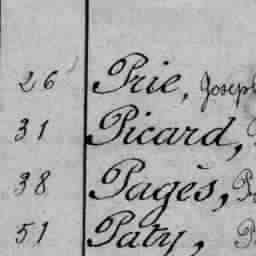 26 Prie, Joseph
31 Picard,
38 Pagès,
51 Paty,